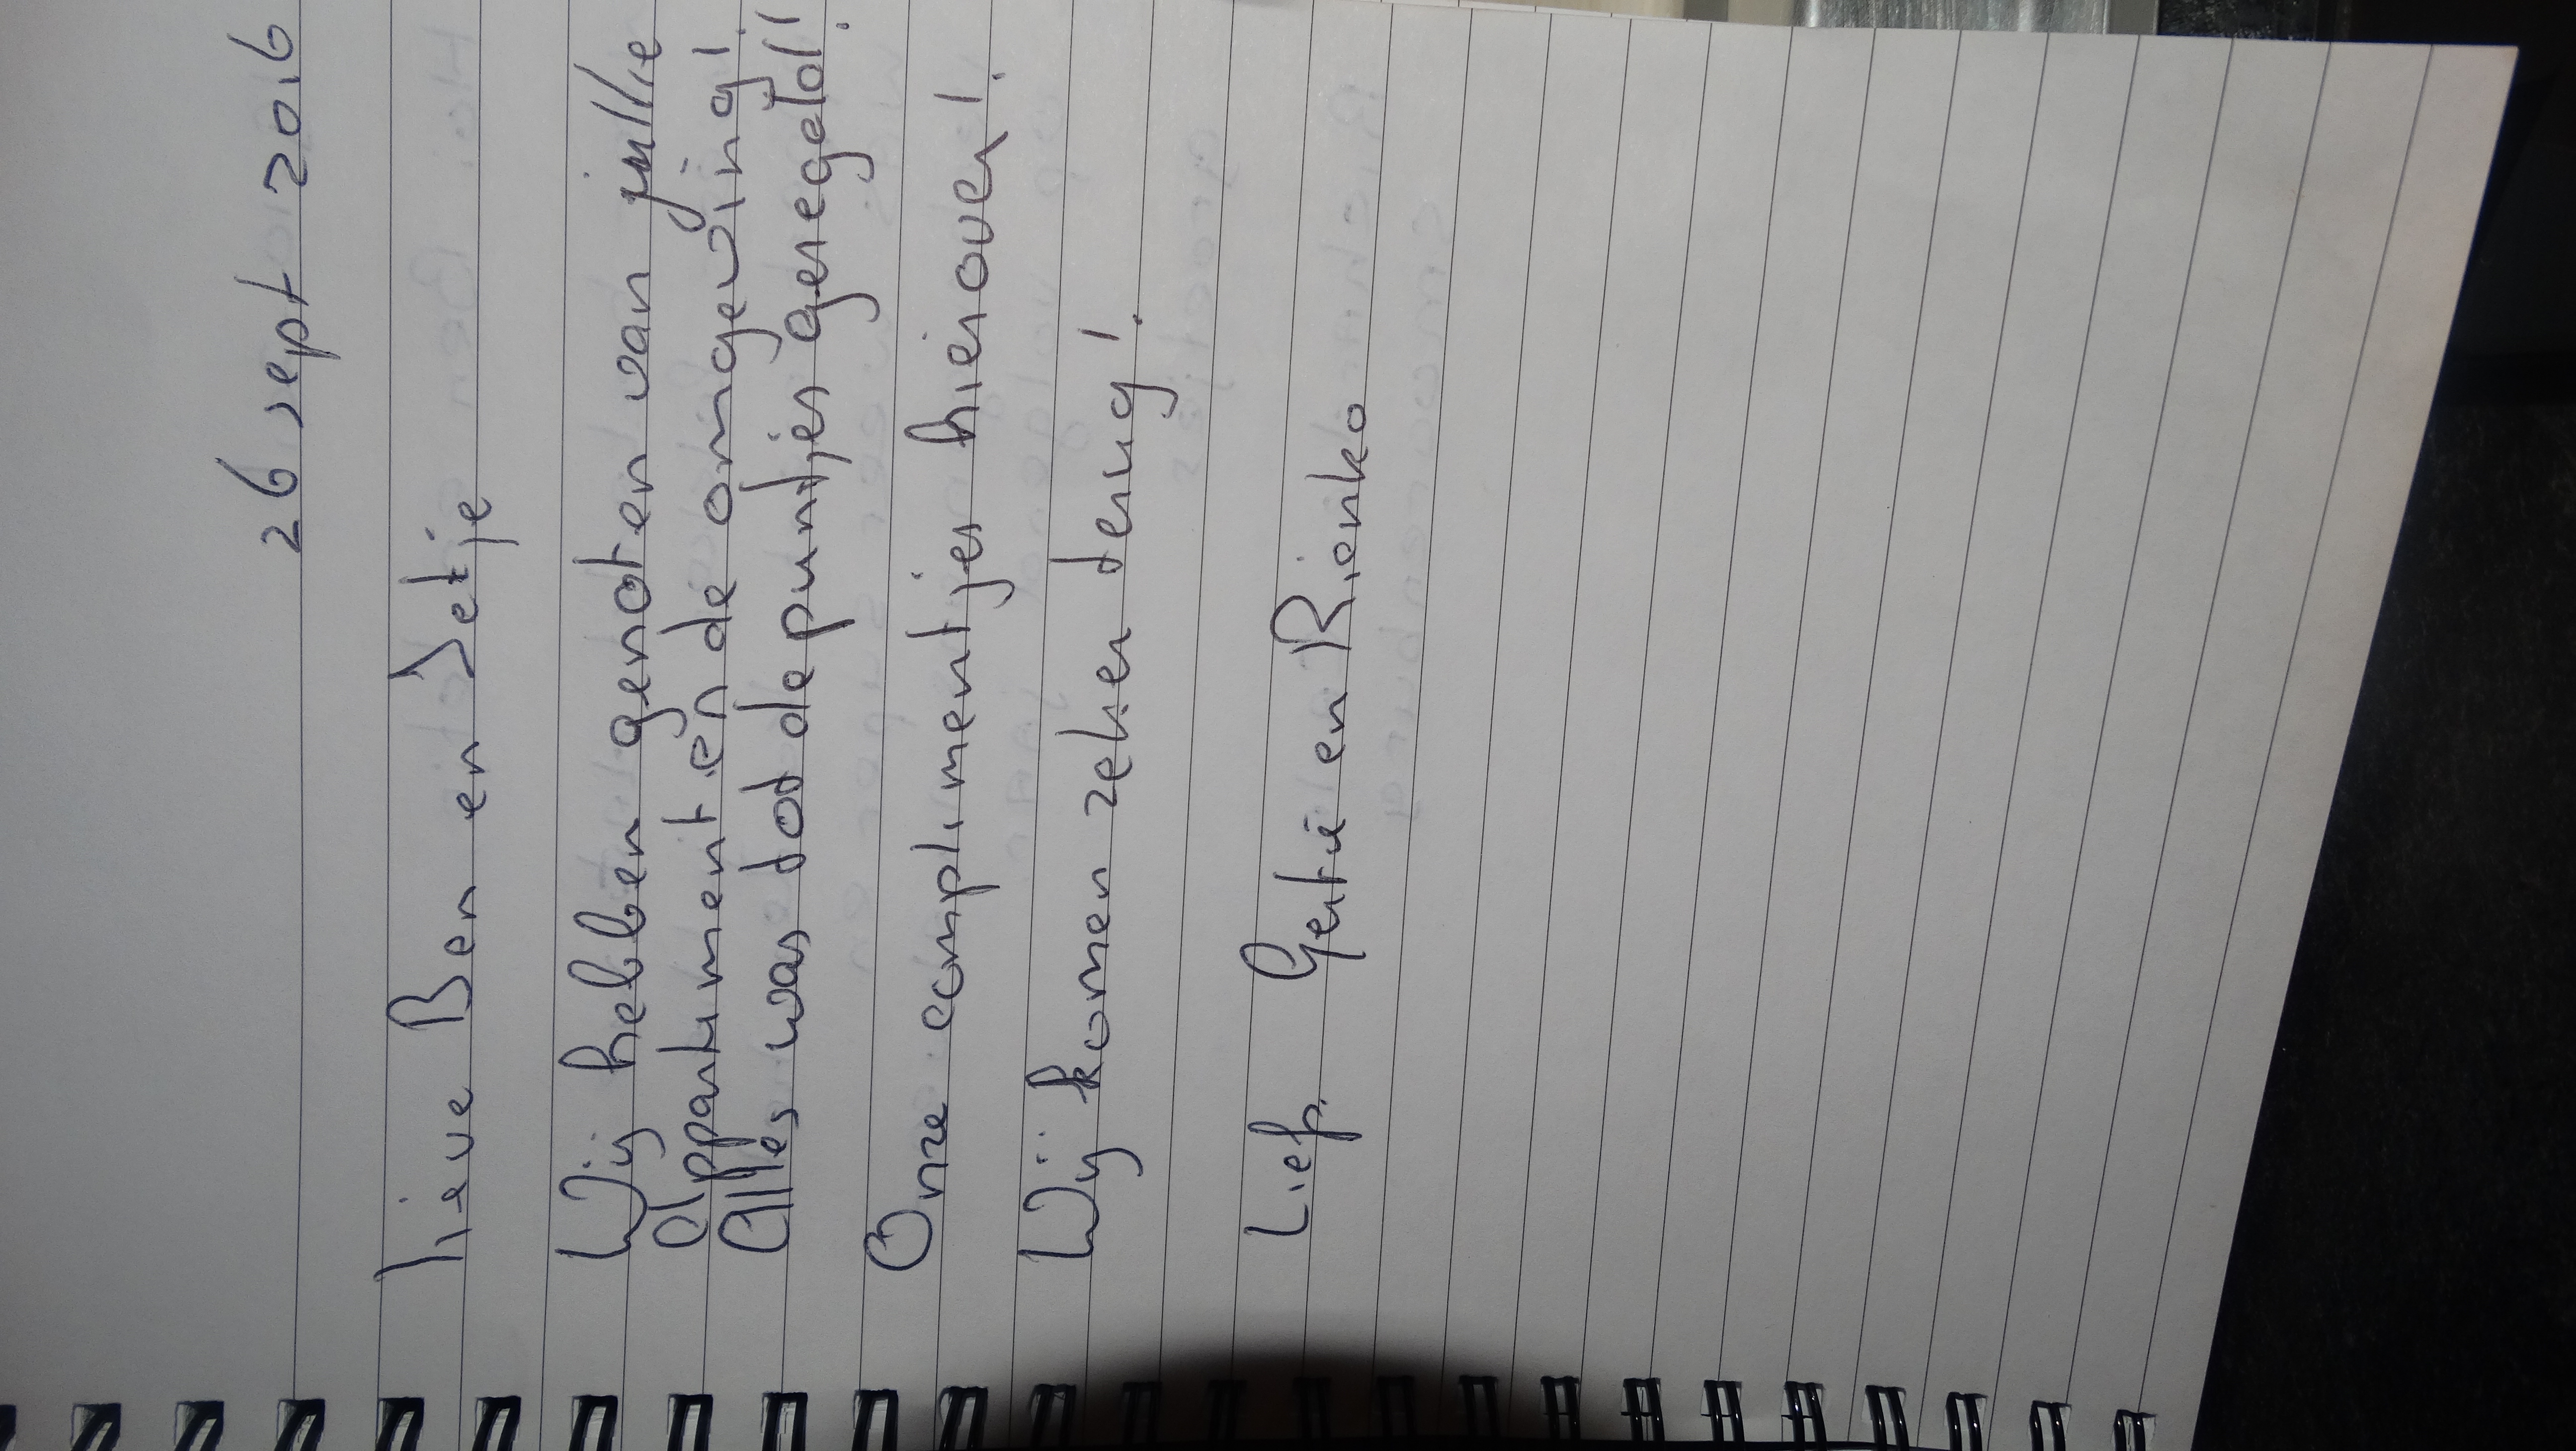 26 sept 2016
Lieve Ben en Jetje
Wij hebben genoten van jullie
Appartement en de omgeving!
Alles was tot de puntjes geregeld!!
Onze complimentjes hierover!
Wij komen zeker terug!
Liefs Gertie en Rionko